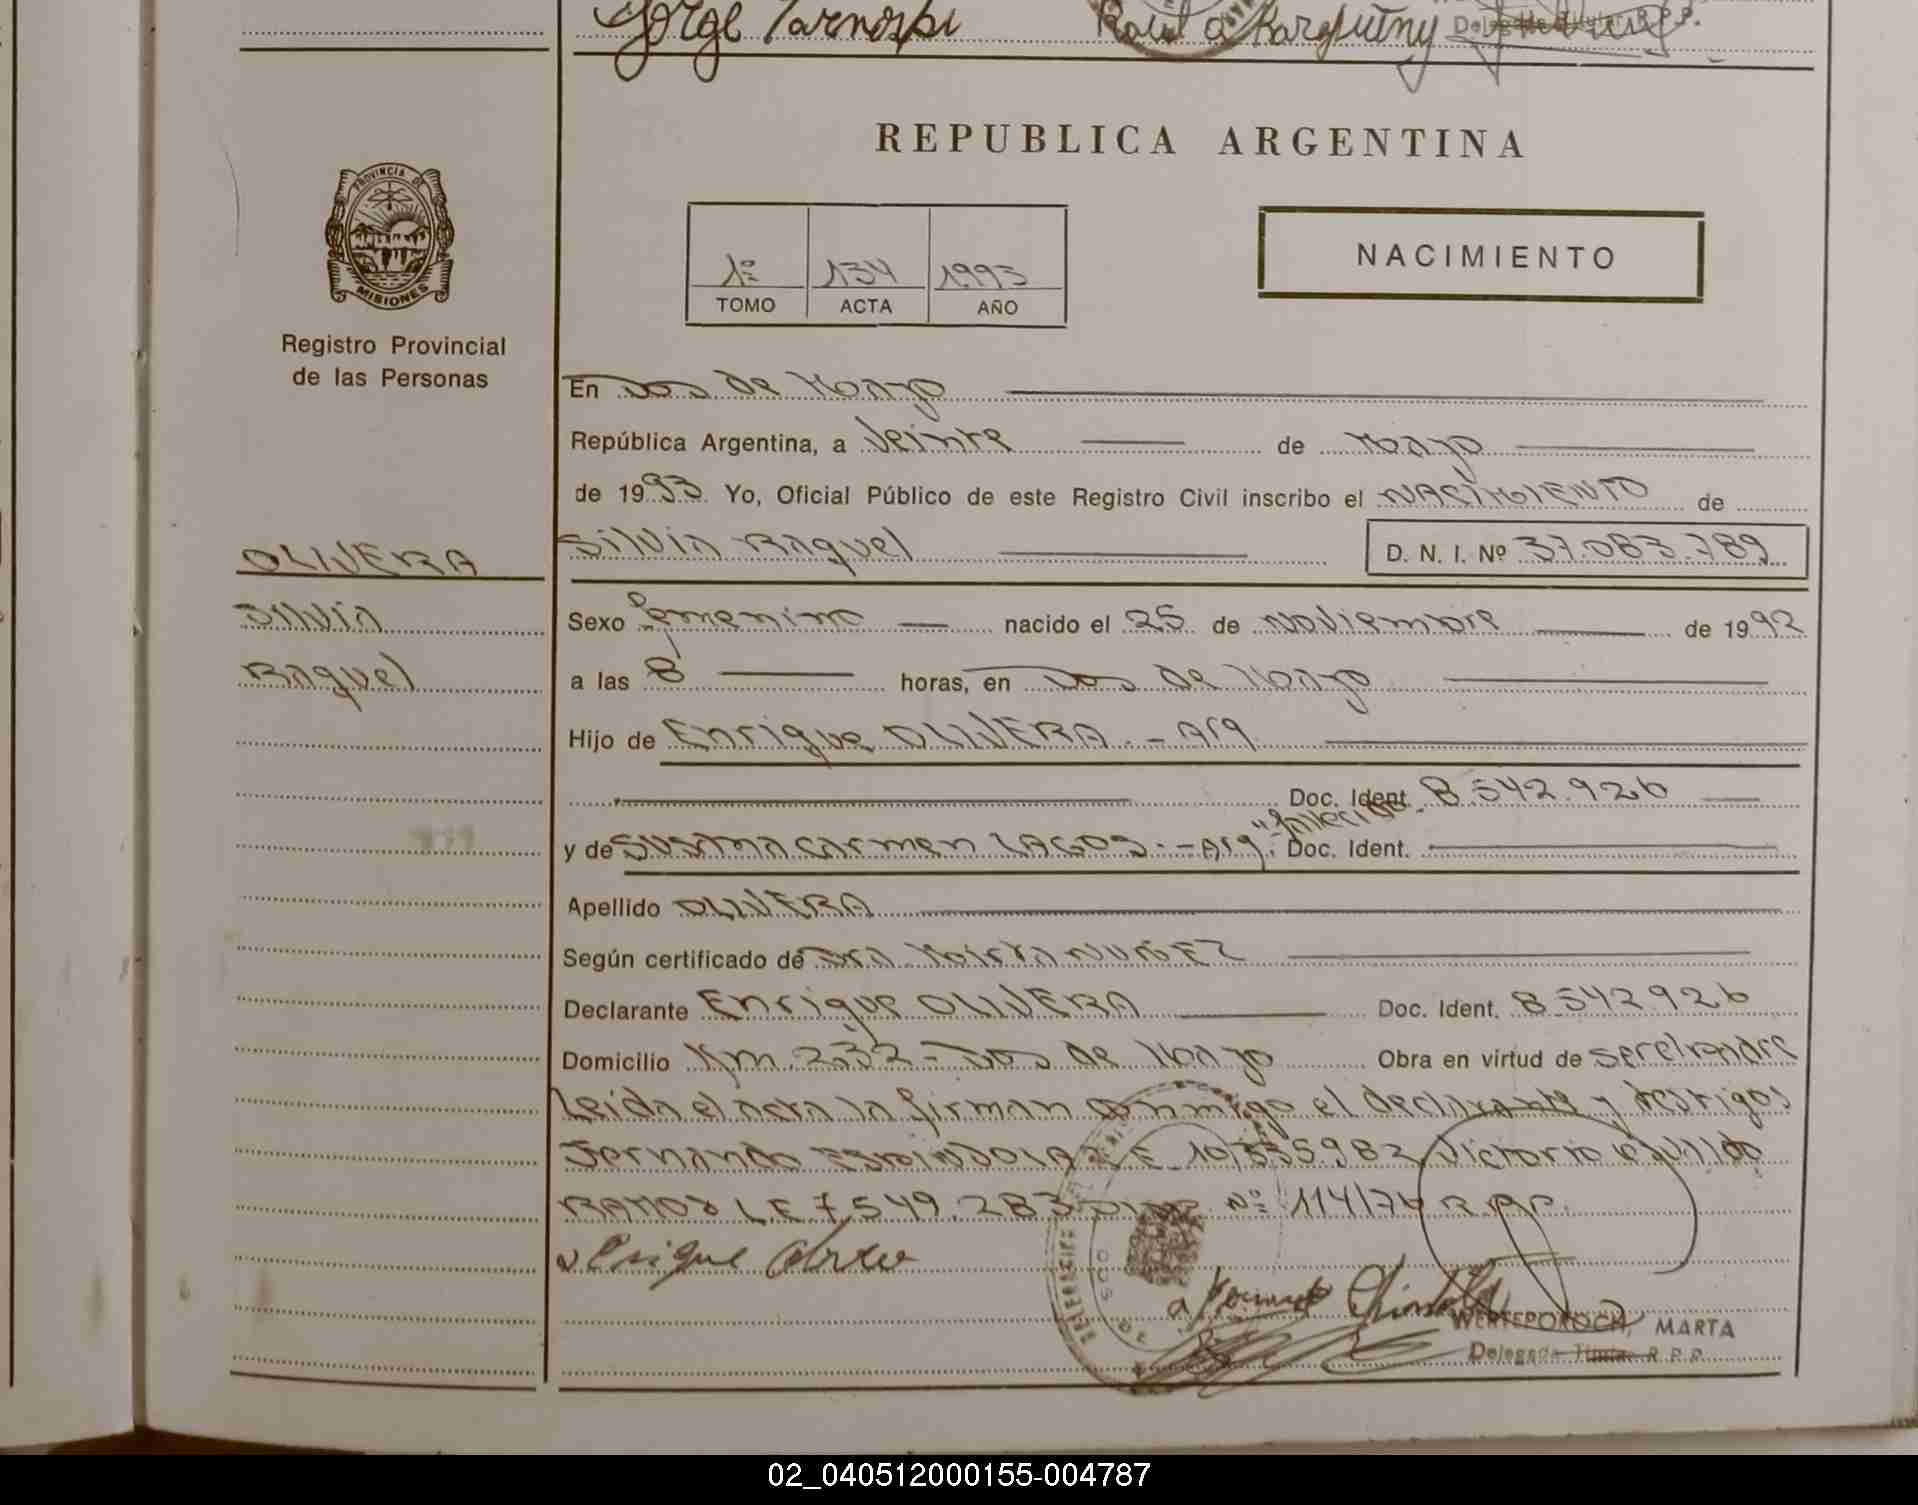 Jorge Tarnoski
Raul A Karquieny Delegada Titular R.P.P.
REPUBLICA ARGENTINA
PROVINCIA DE
MISIONES
Registro Provincial
de las Personas
1º 134 1993
TOMO ACTA AÑO
NACIMIENTO
En Dos de Mayo
República Argentina, a Veinte de Mayo
de 1993 Yo, Oficial Público de este Registro Civil inscribo el NACIMIENTO de
Silvia Raquel D. N. I. Nº 37.083.789
OLIVERA
Silvia
Raquel
Sexo femenino nacido el 25 de Noviembre de 1992
a las 8 horas, en Dos de Mayo
Hijo de Enrique OLIVERA.-Arg.
Doc. Ident. 8.542.926
y de Susana Carmen LAGOS.-Arg. "fallecida" Doc. Ident.
Apellido OLIVERA
Según certificado de Dra Mirta NUÑEZ
Declarante Enrique OLIVERA Doc. Ident. 8.542926
Domicilio Km. 232-Dos de Mayo Obra en virtud de ser el padre
Leida el acta la firman conmigo el declarante y testigos
Fernando ESPINDOLA L E 10.335.982 Victorio
RAMOS LE 7.549.283 Disp. Nº 114/76 R.P.P.
WERTEPOROCH, MARTA
Delegada Titular R.P.P.
02_040512000155-004787